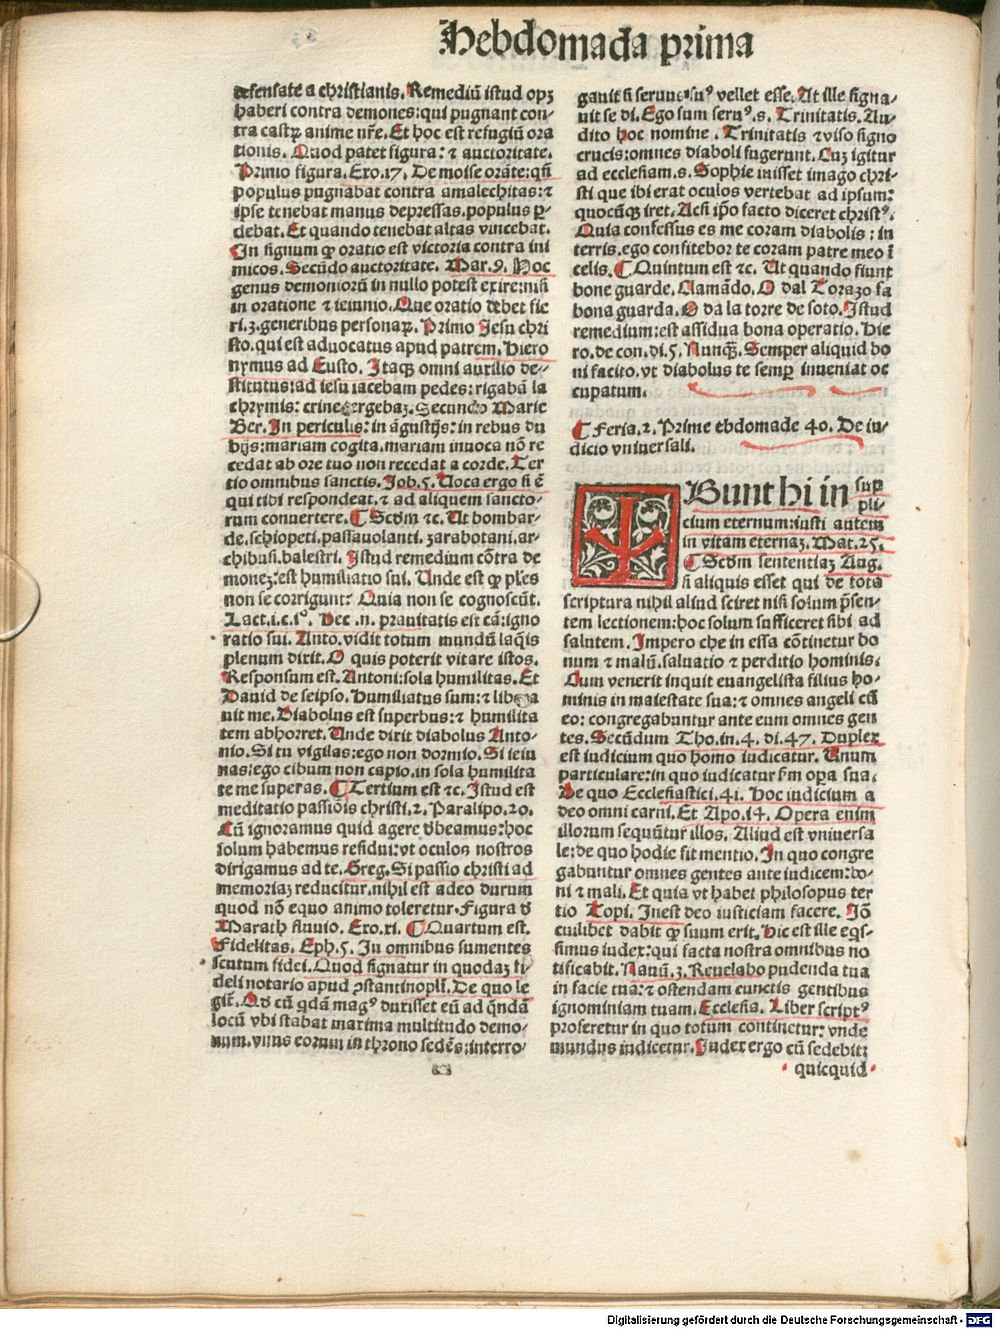 Hebdomada prima
defensate a christianis. Remediũ istud opꝫ
haberi contra demones: qui pugnant con-
tra castꝝ anime nr̃e. Et hoc est refugiũ ora
tionis. Quod patet figura: ⁊ auctoritate.
Primo figura. Exo.17. De moise orãte: qñ
populus pugnabat contra amalechitas: ⁊
ipse tenebat manus depressas. populus ꝑ-
debat. Et quando tenebat altas vincebat.
In signum ꝙ oratio est victoria contra ini
micos. Secũdo auctoritate. Mar.9. Hoc
genus demoniorũ in nullo potest exire: nisi
in oratione ⁊ ieiunio. Que oratio debet fie
ri.3. generibus personaꝝ. Primo Jesu chri
sto. qui est aduocatus apud patrem. Hiero
nymus ad Eusto. Itaqꝫ omni auxilio de-
stitutus: ad iesu iacebam pedes: rigabã la
chrymis: crine tergebaꝫ. Secundo Marie
Ber. In periculis: in ãgustijs: in rebus du
bijs: mariam cogita. mariam inuoca nõ re
cedat ab ore tuo non recedat a corde. Ter
tio omnibus sanctis. Job.5. Uoca ergo si ẽ
qui tibi respondeat. ⁊ ad aliquem sancto-
rum conuertere. ¶ Scḋm ⁊c. Ut bombar-
de. schiopeti. passauolanti. zarabotani. ar-
chibusi. balestri. Istud remedium cõtra de
moneꝫ: est humiliatio sui. Unde est ꝙ pl̃es
non se corrigunt? Quia non se cognoscũt.
Lact.i.c.iº. Hec .n. prauitatis est cã: igno
ratio sui. Anto. vidit totum mundũ laq̃is
plenum dixit. O quis poterit vitare istos.
Responsum est. Antoni: sola humilitas. Et
Dauid de seipso. Humiliatus sum: ⁊ libera
uit me. Diabolus est superbus: ⁊ humilita
tem abhorret. Unde dixit diabolus Anto-
nio. Si tu vigilas: ego non dormio. Si ieiu
nas: ego cibum non capio. in sola humilita
te me superas. ¶ Tertium est ⁊c. Istud est
meditatio passiõis christi. 2. Paralipo.20.
Cũ ignoramus quid agere ḋbeamus: hoc
solum habemus residui: vt oculos nostros
dirigamus ad te. Greg. Si passio christi ad
memoriaꝫ reducitur. nihil est adeo durum
quod nõ equo animo toleretur. Figura ḋ
Marath fluuio. Exo.xi. ¶ Quartum est.
Fidelitas. Eph.5. In omnibus sumentes
scutum fidei. Quod signatur in quodaꝫ fi
deli notario apud ꝯstantinopl̃i. De quo le
git̃. Qḋ cũ q̃dã magꝰ duxisset eũ ad q̃ndã
locũ vbi stabat maxima multitudo demo-
num. vnus eorum in throno sedẽs: interro-
gauit si seruus suꝰ vellet esse. At ille signa-
uit se di. Ego sum seruꝰ .s. Trinitatis. Au-
dito hoc nomine. Trinitatis ⁊ viso signo
crucis: omnes diaboli fugerunt. Cuꝫ igitur
ad ecclesiam .s. Sophie iuisset imago chri-
sti que ibi erat oculos vertebat ad ipsum:
quocũqꝫ iret. Acsi ip̃o facto diceret christꝰ.
Quia confessus es me coram diabolis: in
terris. ego confitebor te coram patre meo ĩ
celis. ¶ Quintum est ⁊c. Ut quando fiunt
bone guarde. Clamãdo. O dal Torazo fa
bona guarda. O da la torre de soto. Istud
remedium: est assidua bona operatio. Hie
ro. de con. di.5. Nunqꝫ. Semper aliquid bo
ni facito. vt diabolus te semꝑ inueniat oc
cupatum.
¶ Feria.2. Prime ebdomade 40. De iu-
dicio vniuersali.
IBunt hi in supplicium eternum: iusti autem
in vitam eternaꝫ. Mat.25.
¶ Scḋm sententiaꝫ Aug.
si aliquis esset qui de tota
scriptura nihil aliud sciret nisi solum p̃sen-
tem lectionem: hoc solum sufficeret sibi ad
salutem. Impero che in essa cõtinetur bo
num ⁊ malũ. saluatio ⁊ perditio hominis.
Cum venerit inquit euangelista filius ho-
minis in maiestate sua: ⁊ omnes angeli cũ
eo: congregabuntur ante eum omnes gen
tes. Secũdum Tho. in.4. di.47. Duplex
est iudicium quo homo iudicatur. Unum
particulare: in quo iudicatur fm oꝑa sua.
De quo Ecclesiastici.41. Hoc iudicium a
deo omni carni. Et Apo.14. Opera enim
illorum sequũtur illos. Aliud est vniuersa
le: de quo hodie fit mentio. In quo congre
gabuntur omnes gentes ante iudicem: bo-
ni ⁊ mali. Et quia vt habet philosopus ter
tio Topi. Inest deo iusticiam facere. Iõ
cuilibet dabit ꝙ suum erit. Hic est ille eq̃s-
simus iudex: qui facta nostra omnibus no
tificabit. Nauũ.3. Reuelabo pudenda tua
in facie tua: ⁊ ostendam cunctis gentibus
ignominiam tuam. Ecclesia. Liber scriptꝰ
proferetur in quo totum continetur: vnde
mundus iudicetur. Iudex ergo cũ sedebit:
quicquid
Digitalisierung gefördert durch die Deutsche Forschungsgemeinschaft - DFG